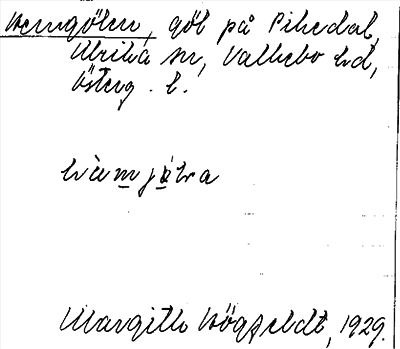 Hemgölen, göl på Pikedal,
Ulrika sn, Valkebo hd,
Österg. l.
hæ̀mjö̀lra
Margith Högfeldt, 1929.